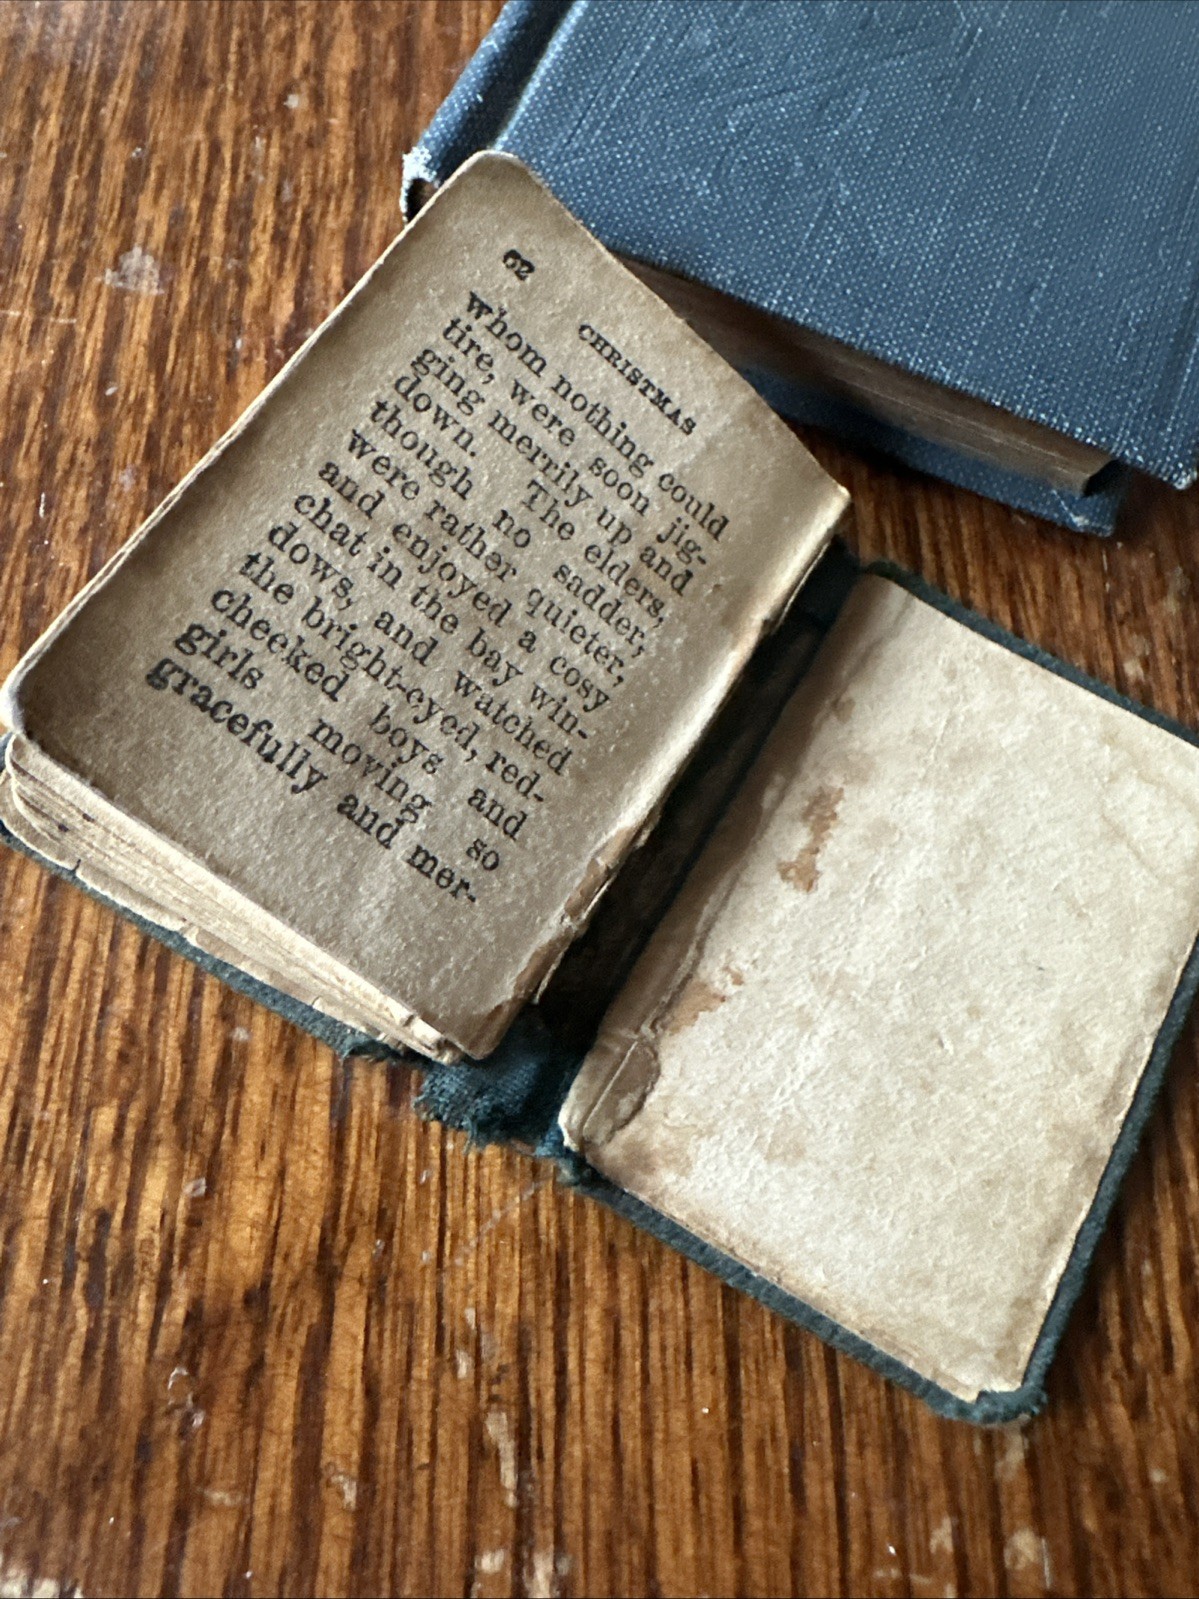 62
CHRISTMAS
whom nothing could
tire, were soon jig-
ging merrily up and
down. The elders,
though no sadder,
were rather quieter,
and enjoyed a cosy
chat in the bay win-
dows, and watched
the bright-eyed, red-
checked boys and
girls moving so
gracefully and mer-